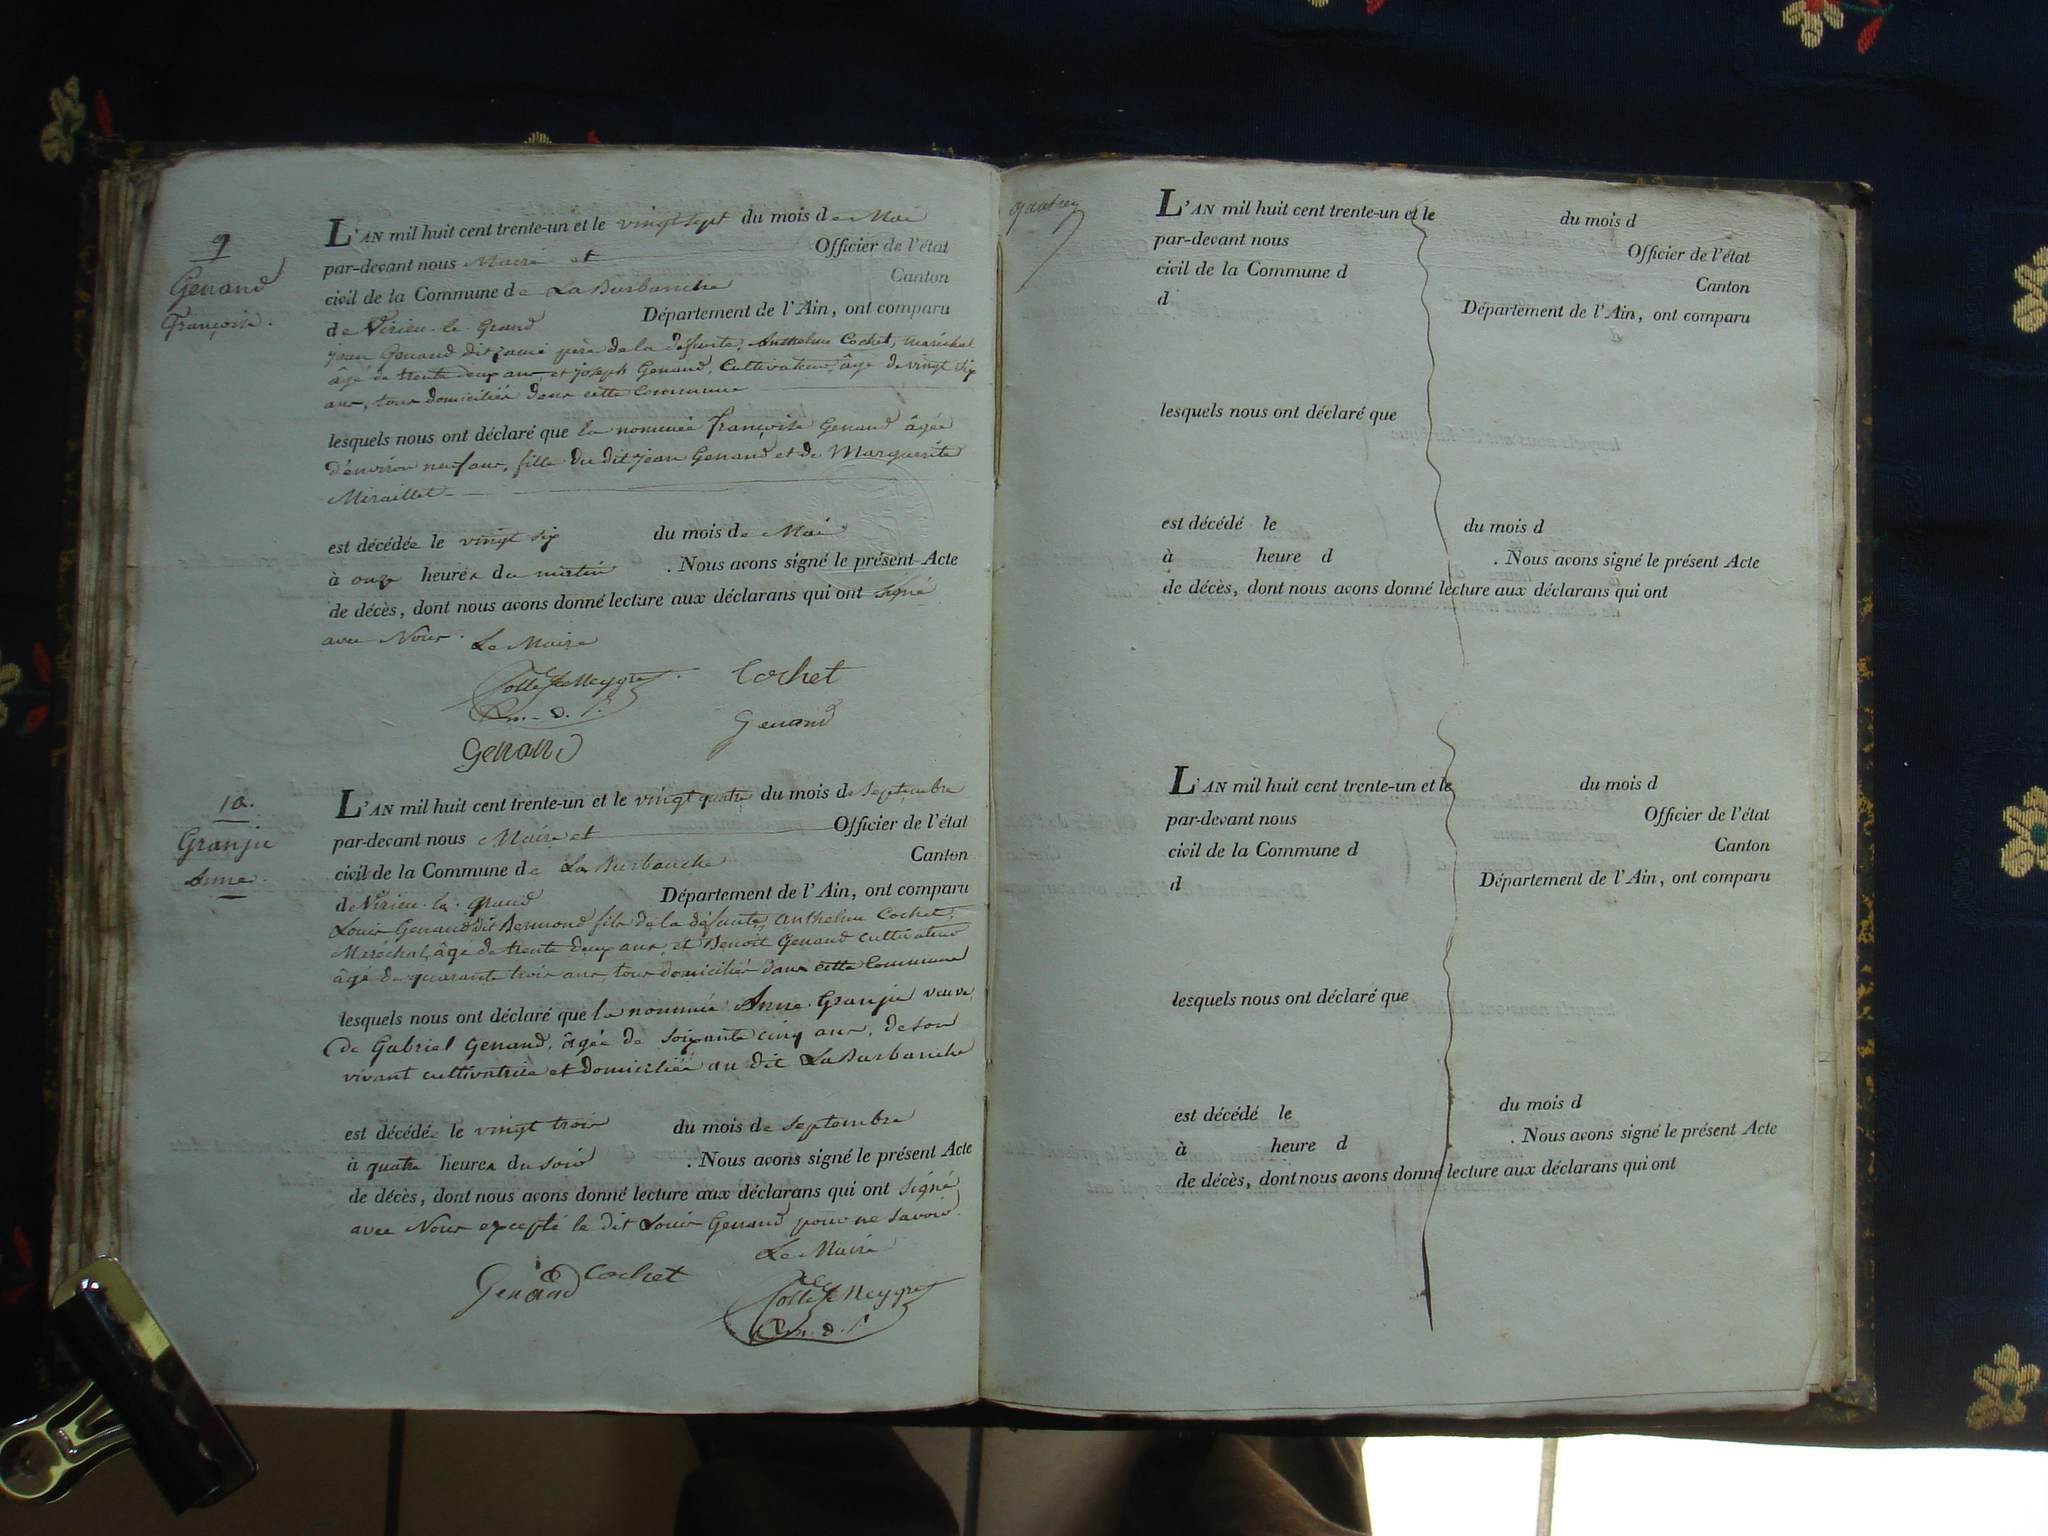 9
Genand
Françoise.
L'AN mil huit cent trente-un et le vingt sept du mois de Mai
par-devant nous Maire et Officier de l'état
civil de la Commune de La Burbanche Canton
de Virieu-le-Grand Département de l'Ain, ont comparu
jean Genand dit père de la défunte, Anthelme Cochet, maréchal
âgé de trente deux ans et joseph Genand, Cultivateur, âgé de vingt six
ans, tous domiciliés dans cette Commune
lesquels nous ont déclaré que la nommée françoise Genand âgée
d'environ neuf ans, fille du dit jean Genand et de Marguerite
Miraillet
est décédée le vingt six du mois de Mai
à onze heures du matin . Nous avons signé le présent Acte
de décès, dont nous avons donné lecture aux déclarans qui ont signé
avec Nous.
Le Maire
Cochet
Genand
Genand
10.
Granju
Anne.
L'AN mil huit cent trente-un et le vingt quatre du mois de Septembre
par-devant nous Maire et Officier de l'état
civil de la Commune de La Burbanche Canton
de Virieu-le-grand Département de l'Ain, ont comparu
Louis Genand dit fils de la défunte, Anthelme Cochet,
Maréchal, âgé de trente deux ans, et Benoît Genand cultivateur
âgé de quarante trois ans, tous domiciliés dans cette Commune
lesquels nous ont déclaré que la nommée Anne Granju veuve
de Gabriel Genand, âgée de soixante cinq ans, de son
vivant cultivatrice et domiciliée au dit La Burbanche
est décédée le vingt trois du mois de Septembre
à quatre heures du soir . Nous avons signé le présent Acte
de décès, dont nous avons donné lecture aux déclarans qui ont signé
avec Nous excepté le dit Louis Genand pour ne savoir.
Le Maire
Genand Cochet
L'AN mil huit cent trente-un et le du mois d
par-devant nous Officier de l'état
civil de la Commune d Canton
d Département de l'Ain, ont comparu
lesquels nous ont déclaré que
est décédé le du mois d
à heure d . Nous avons signé le présent Acte
de décès, dont nous avons donné lecture aux déclarans qui ont
L'AN mil huit cent trente-un et le du mois d
par-devant nous Officier de l'état
civil de la Commune d Canton
d Département de l'Ain, ont comparu
lesquels nous ont déclaré que
est décédé le du mois d
à heure d . Nous avons signé le présent Acte
de décès, dont nous avons donné lecture aux déclarans qui ont